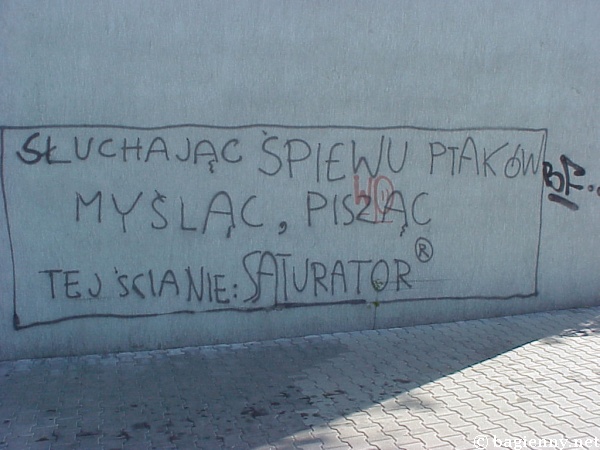 SŁUCHAJĄC ŚPIEWU PTAKÓW
MYŚLĄC, PISZĄC
TEJ ŚCIANIE: SATURATOR®
BF..
© bagienny.net